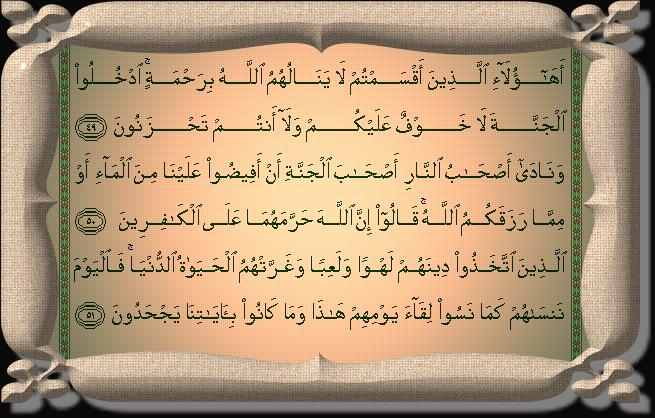 أَهَـٰٓؤُلَآءِ ٱلَّذِينَ أَقْسَمْتُمْ لَا يَنَالُهُمُ ٱللَّهُ بِرَحْمَةٍۚ ٱدْخُلُوا۟
ٱلْجَنَّةَ لَا خَوْفٌ عَلَيْكُمْ وَلَآ أَنتُمْ تَحْزَنُونَ ٤٩
وَنَادَىٰٓ أَصْحَـٰبُ ٱلنَّارِ أَصْحَـٰبَ ٱلْجَنَّةِ أَنْ أَفِيضُوا۟ عَلَيْنَا مِنَ ٱلْمَآءِ أَوْ
مِمَّا رَزَقَكُمُ ٱللَّهُۚ قَالُوٓا۟ إِنَّ ٱللَّهَ حَرَّمَهُمَا عَلَى ٱلْكَـٰفِرِينَ ٥٠
ٱلَّذِينَ ٱتَّخَذُوا۟ دِينَهُمْ لَهْوًا وَلَعِبًا وَغَرَّتْهُمُ ٱلْحَيَوٰةُ ٱلدُّنْيَاۚ فَٱلْيَوْمَ
نَنسَىٰهُمْ كَمَا نَسُوا۟ لِقَآءَ يَوْمِهِمْ هَـٰذَا وَمَا كَانُوا۟ بِـَٔايَـٰتِنَا يَجْحَدُونَ ٥١